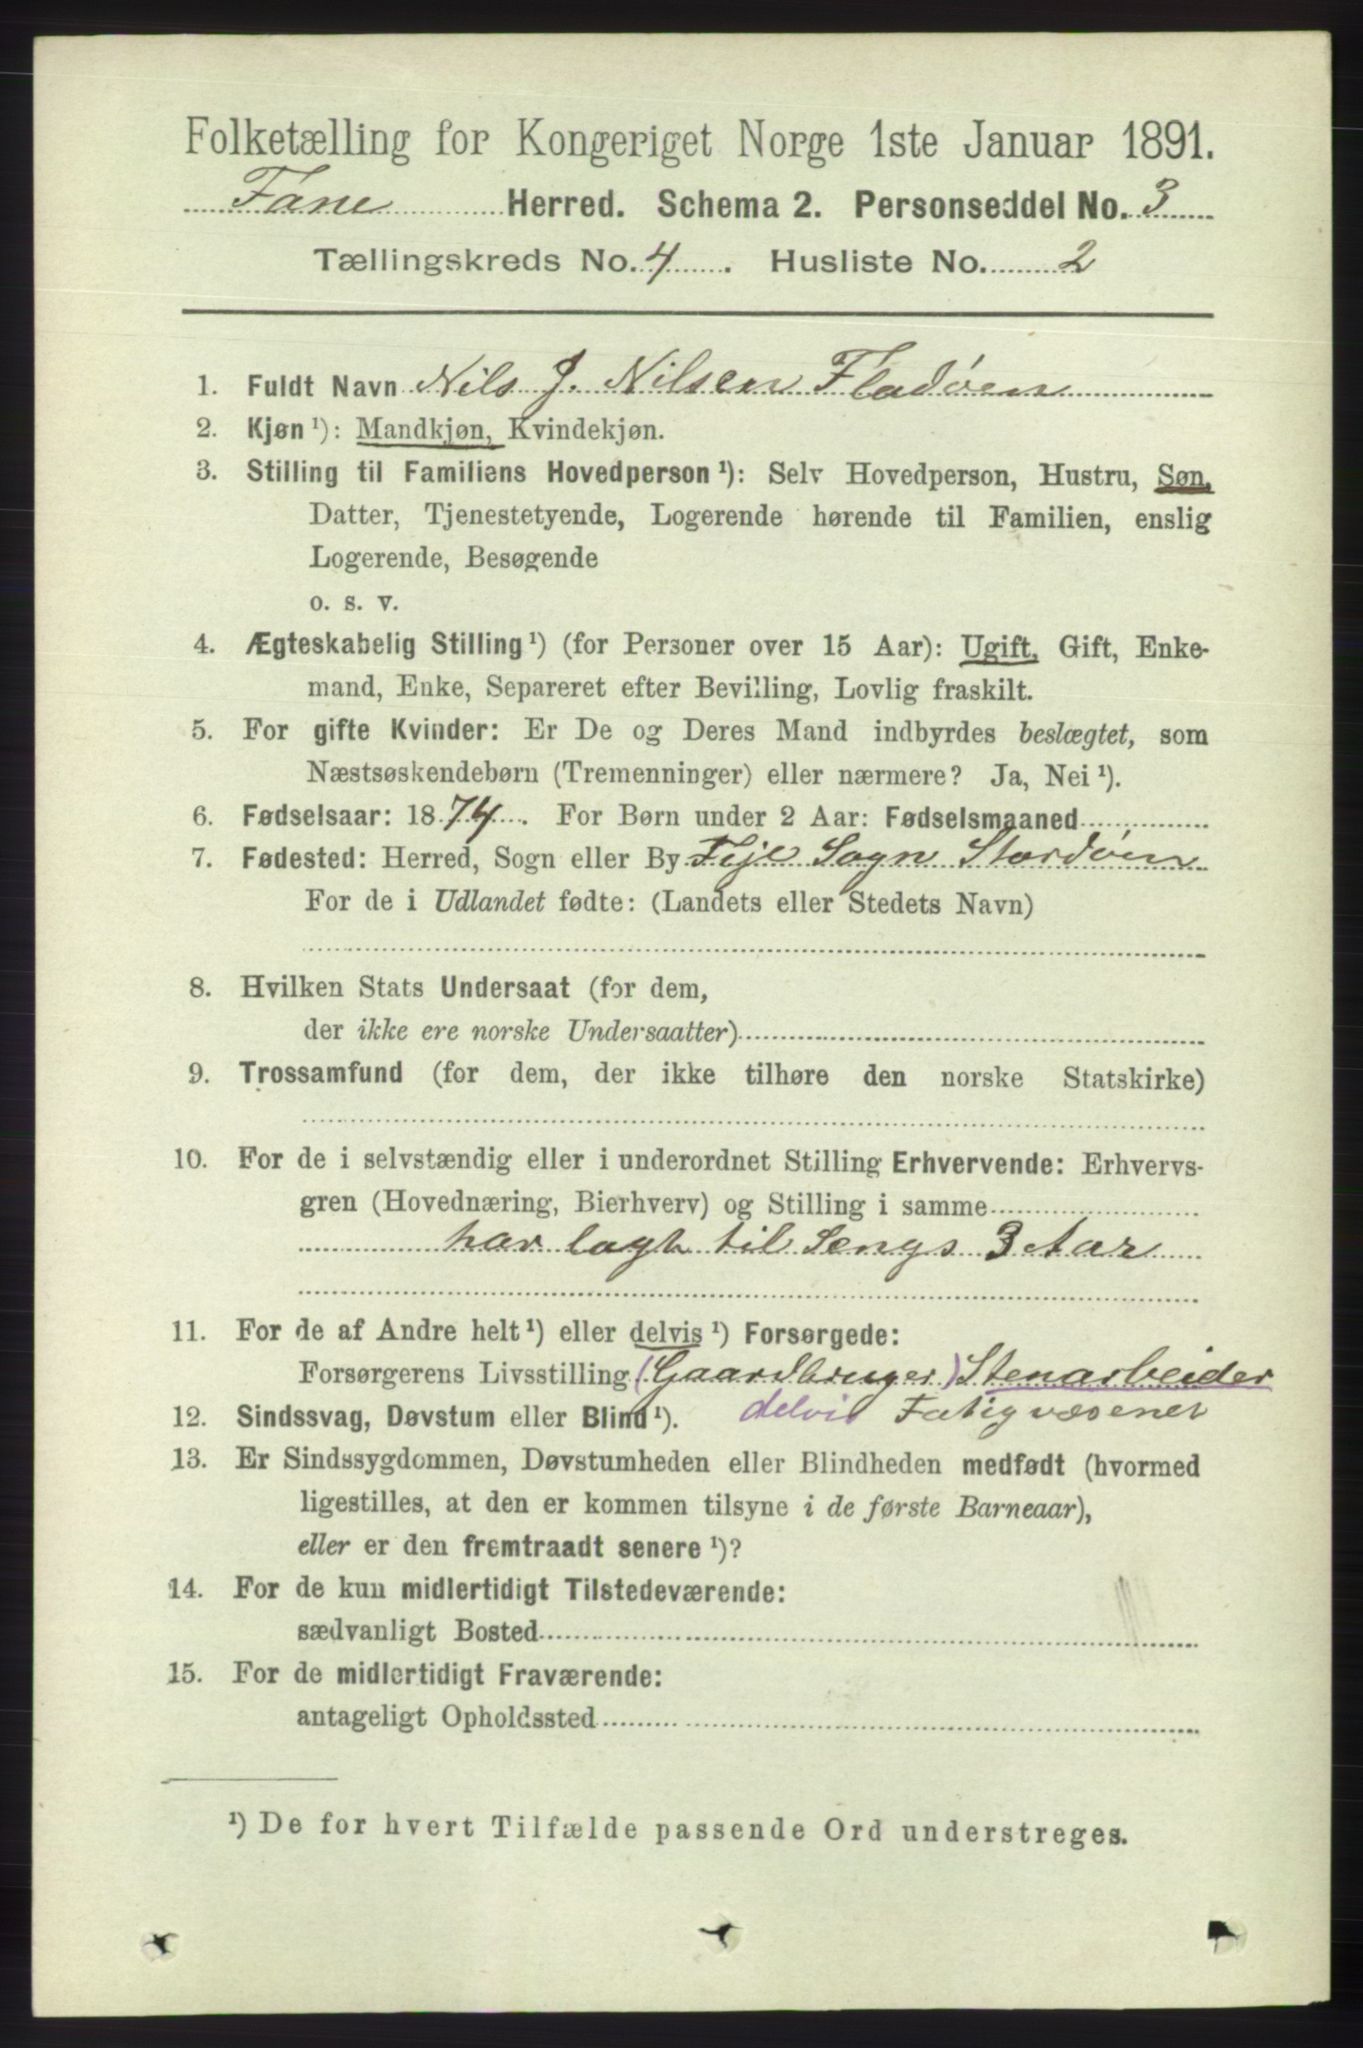 Folketælling for Kongeriget Norge 1ste Januar 1891.
Fane Herred. Schema 2. Personseddel No. 3
Tællingskreds No. 4 . Husliste No. 2
1. Fuldt Navn Nils J. Nilsen Fladøen
2. Kjøn¹): Mandkjøn, Kvindekjøn.
3. Stilling til Familiens Hovedperson¹): Selv Hovedperson, Hustru, Søn,
Datter, Tjenestetyende, Logerende hørende til Familien, enslig
Logerende, Besøgende
o. s. v.
4. Ægteskabelig Stilling¹) (for Personer over 15 Aar): Ugift, Gift, Enke-
mand, Enke, Separeret efter Bevilling, Lovlig fraskilt.
5. For gifte Kvinder: Er De og Deres Mand indbyrdes beslægtet, som
Næstsøskendebørn (Tremenninger) eller nærmere? Ja, Nei¹).
6. Fødselsaar: 1874. For Børn under 2 Aar: Fødselsmaaned
7. Fødested: Herred, Sogn eller By Feje Sogn Stordøen
For de i Udlandet fødte: (Landets eller Stedets Navn)
8. Hvilken Stats Undersaat (for dem,
der ikke ere norske Undersaatter)
9. Trossamfund (for dem, der ikke tilhøre den norske Statskirke)
10. For de i selvstændig eller i underordnet Stilling Erhvervende: Erhvervs-
gren (Hovednæring, Bierhverv) og Stilling i samme
har lagt til Sengs 3 Aar
11. For de af Andre helt¹) eller delvis¹) Forsørgede:
Forsørgerens Livsstilling (Gaardbruger) Stenarbeider
12. Sindssvag, Døvstum eller Blind¹). delvis Fatigvæsenet
13. Er Sindssygdommen, Døvstumheden eller Blindheden medfødt (hvormed
ligestilles, at den er kommen tilsyne i de første Barneaar),
eller er den fremtraadt senere¹)?
14. For de kun midlertidigt Tilstedeværende:
sædvanligt Bosted
15. For de midlertidigt Fraværende:
antageligt Opholdssted
¹) De for hvert Tilfælde passende Ord understreges.